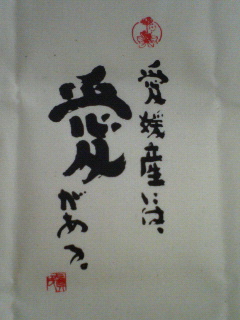 愛媛産には、
愛があふ、